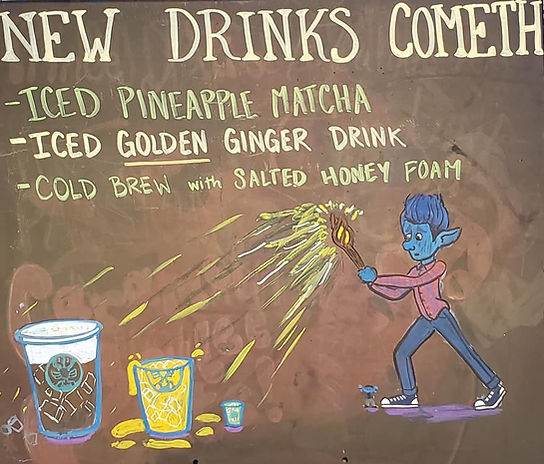 NEW DRINKS COMETH
-ICED PINEAPPLE MATCHA
-ICED GOLDEN GINGER DRINK
-COLD BREW with SALTED HONEY FOAM